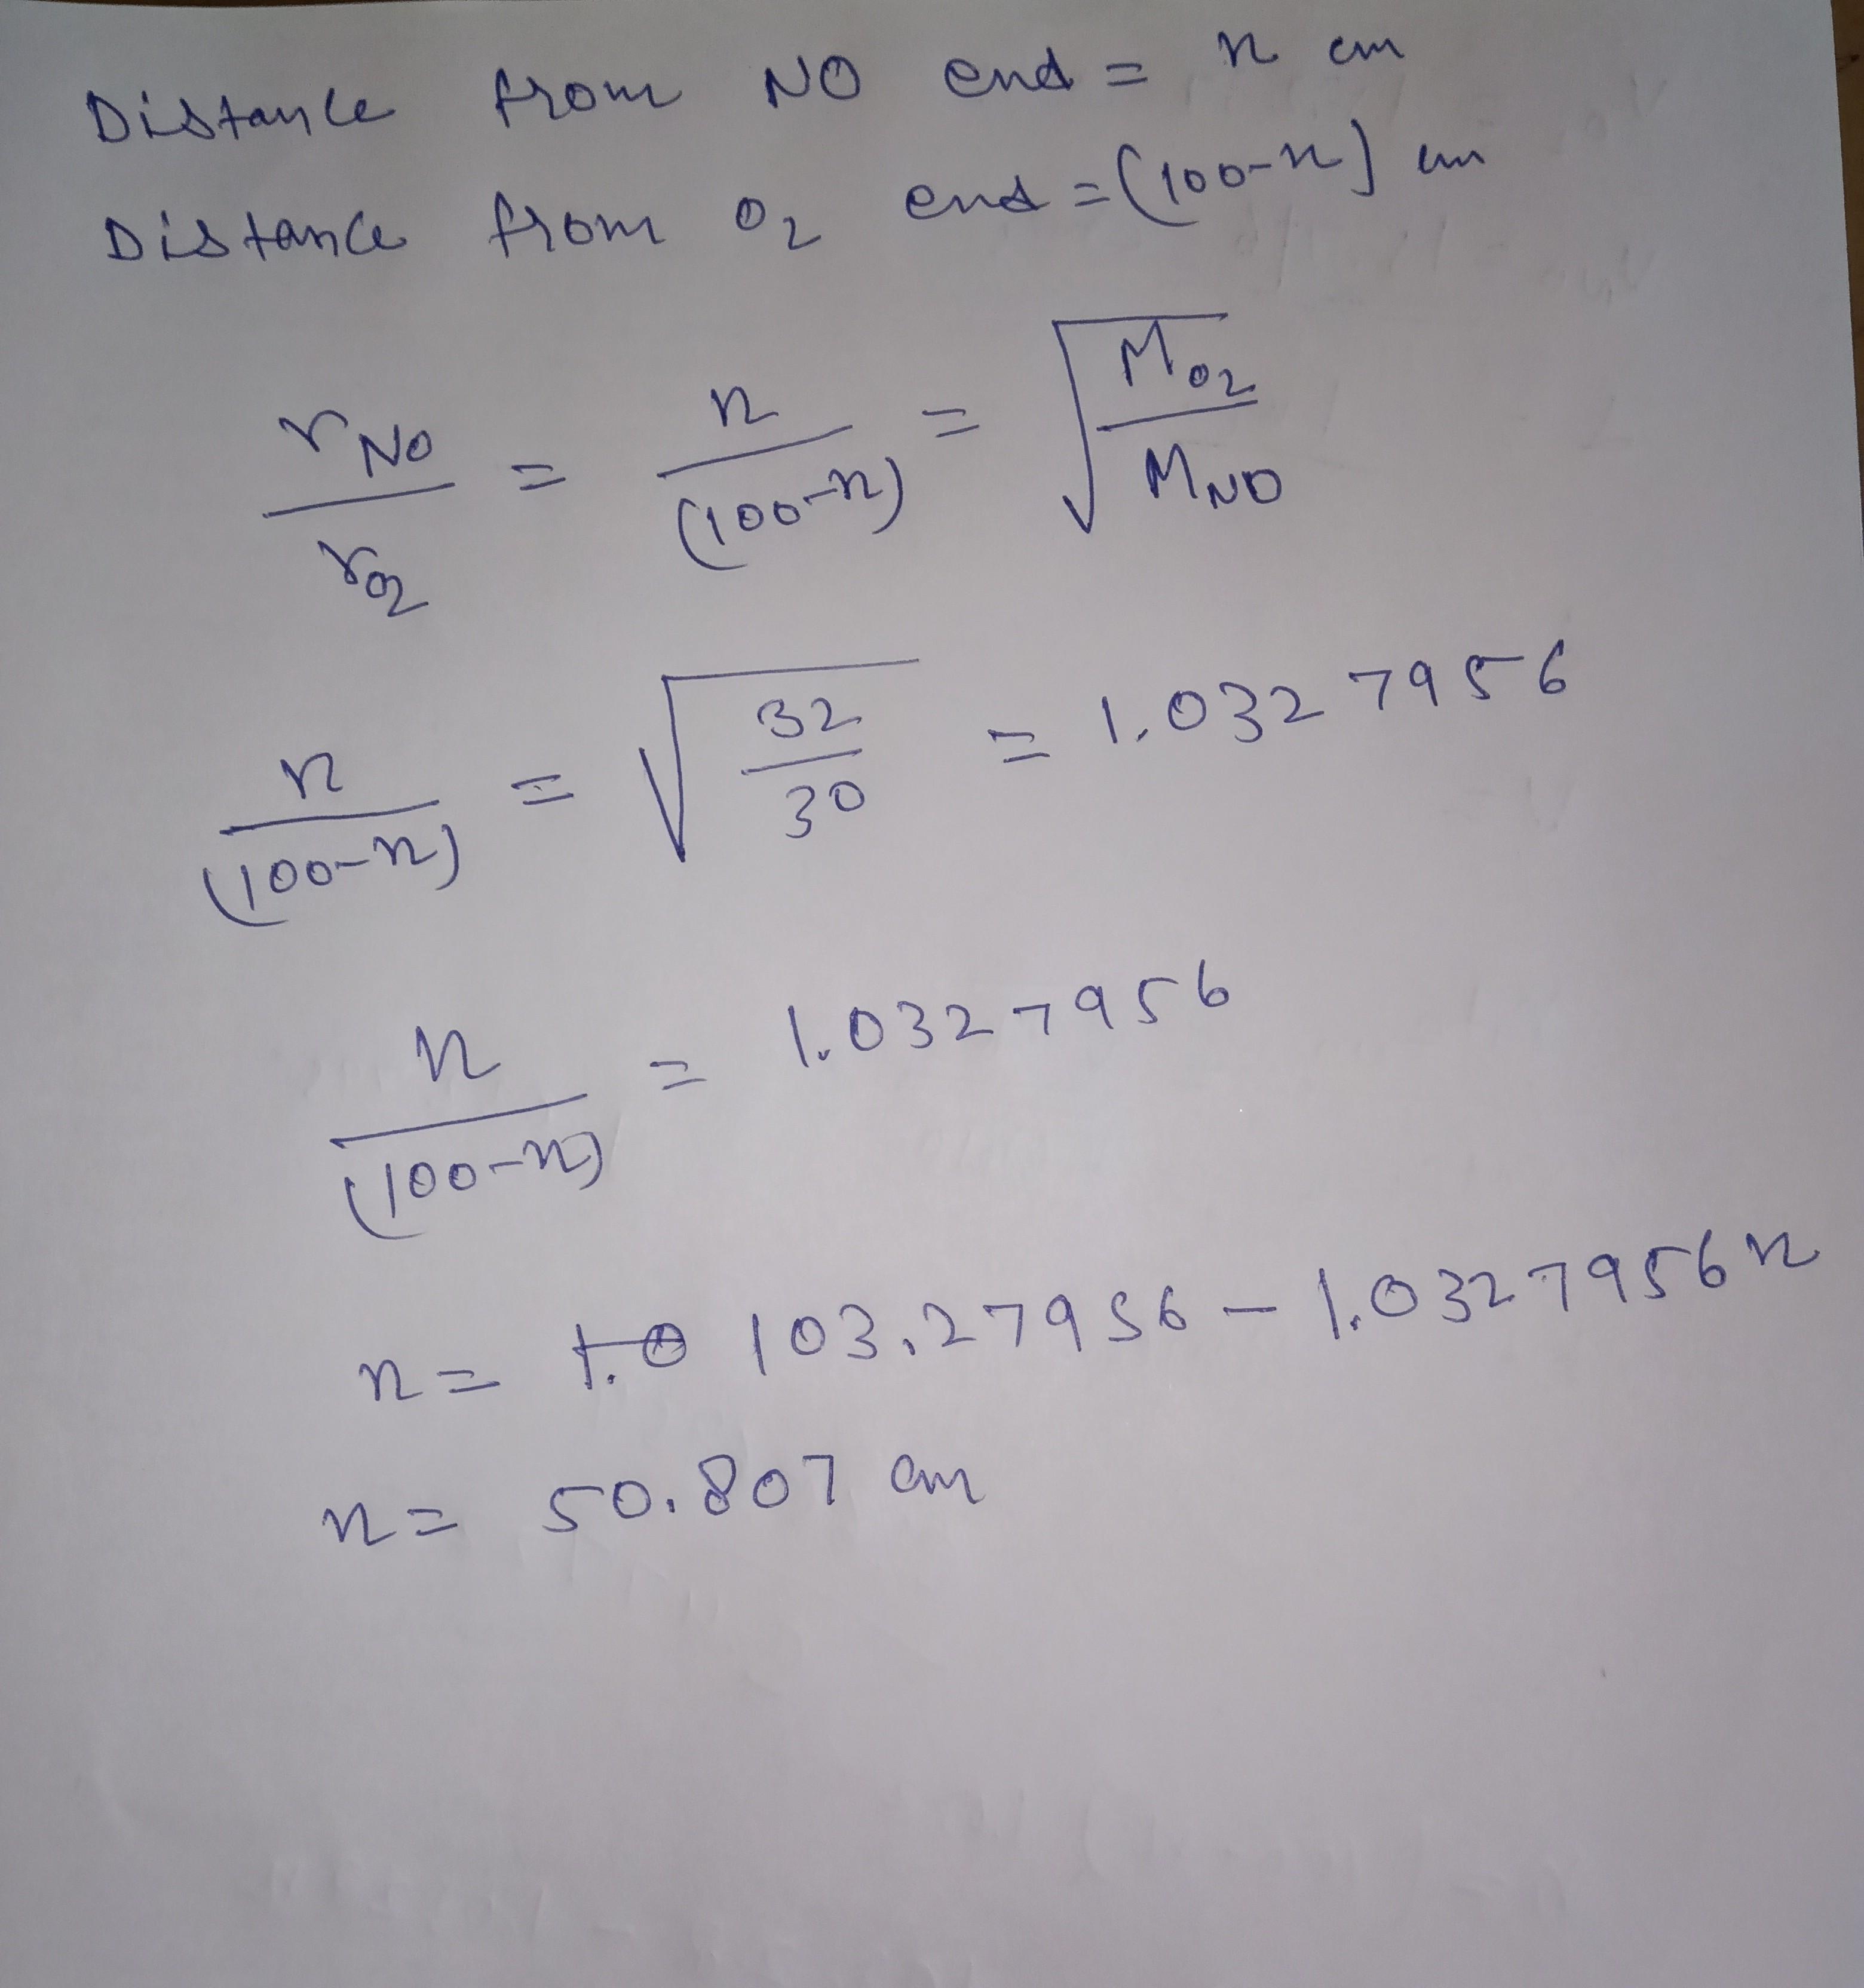 Distance from NO end = n cm
Distance from O2 end = (100-n) cm
rNO / rO2 = n / (100-n) = √(MO2 / MNO)
n / (100-n) = √(32 / 30) = 1.0327956
n / (100-n) = 1.0327956
n = 1.0 103.27956 - 1.0327956n
n = 50.807 cm